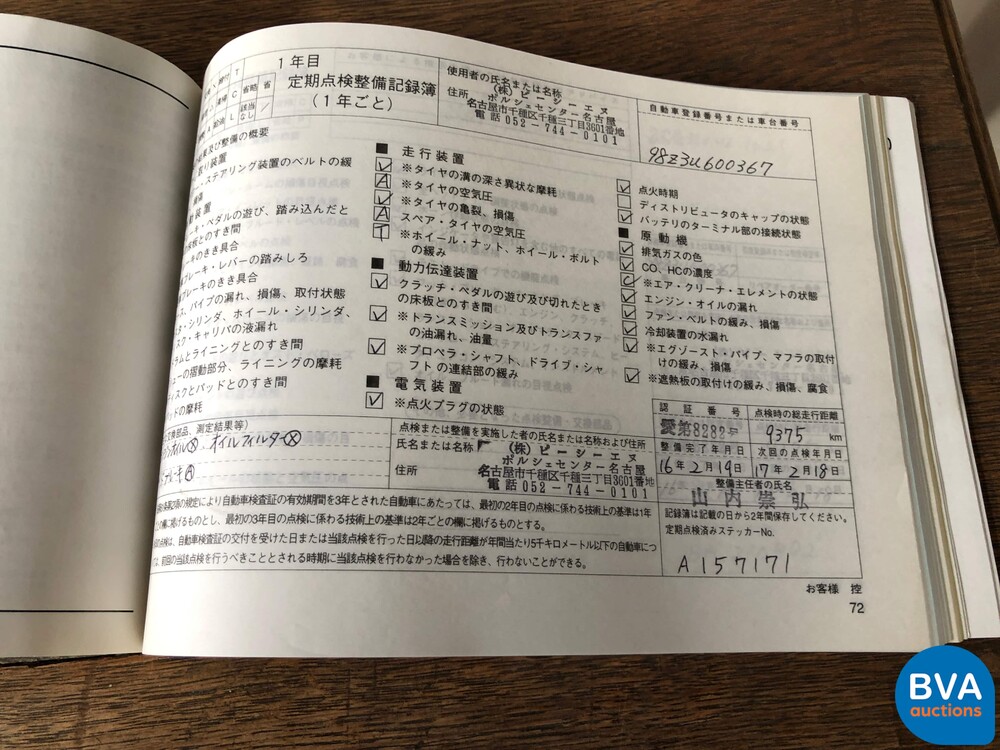 1年目
定期点検整備記録簿
(1年ごと)
T
省略 省
C 該当なし /
L
使用者の氏名または名称
(株)ピーシーエヌ
ポルシェセンター名古屋
住所
名古屋市千種区千種三丁目3601番地
電話 052-744-0101
自動車登録番号または車台番号
98Z3U600367
及び整備の概要
■ 走行装置
※タイヤの溝の深さ異状な摩耗
A ※タイヤの空気圧
※タイヤの亀裂、損傷
A スペア・タイヤの空気圧
T ※ホイール・ナット、ホイール・ボルト
の緩み
■ 動力伝達装置
クラッチ・ペダルの遊び及び切れたとき
の床板とのすき間
※トランスミッション及びトランスファー
の油漏れ、油量
※プロペラ・シャフト、ドライブ・シャ
フトの連結部の緩み
■ 電気装置
※点火プラグの状態
点火時期
ディストリビュータのキャップの状態
バッテリのターミナル部の接続状態
■ 原動機
排気ガスの色
CO、HCの濃度
C ※エア・クリーナ・エレメントの状態
エンジン・オイルの漏れ
ファン・ベルトの緩み、損傷
冷却装置の水漏れ
※エグゾースト・パイプ、マフラの取付
けの緩み、損傷
※遮熱板の取付けの緩み、損傷、腐食
取り装置
・ステアリング装置のベルトの緩
損傷
装置
キ・ペダルの遊び、踏み込んだと
床板とのすき間
ーキのきき具合
ブレーキ・レバーの踏みしろ
ブレーキのきき具合
ス、パイプの漏れ、損傷、取付状態
タ・シリンダ、ホイール・シリンダ、
スク・キャリパの液漏れ
ラムとライニングとのすき間
ューの摺動部分、ライニングの摩耗
ィスクとパッドとのすき間
ッドの摩耗
交換部品、測定結果等)
オイルⓍ オイルフィルターⓍ
ーキⒶ
点検または整備を実施した者の氏名または名称および住所
氏名または名称 (株)ピーシーエヌ
ポルシェセンター名古屋
住所 名古屋市千種区千種三丁目3601番地
電話 052-744-0101
認証番号 点検時の総走行距離
愛第8282号 9375 km
整備完了年月日 次回の点検年月日
16年2月19日 17年2月18日
整備主任者の氏名
山内崇弘
記録簿は記載の日から2年間保存してください。
定期点検済みステッカーNo.
A157171
の規定により自動車検査証の有効期間を3年とされた自動車にあたっては、最初の2年目の点検に係わる技術上の基準は1年
の欄に掲げるものとし、最初の3年目の点検に係わる技術上の基準は2年ごとの欄に掲げるものとする。
の点検は、自動車検査証の交付を受けた日または当該点検を行った日以降の走行距離が年間当たり5千キロメートル以下の自動車につ
ては、前回の当該点検を行うべきこととされる時期に当該点検を行わなかった場合を除き、行わないことができる。
お客様 控
72
BVA
auctions